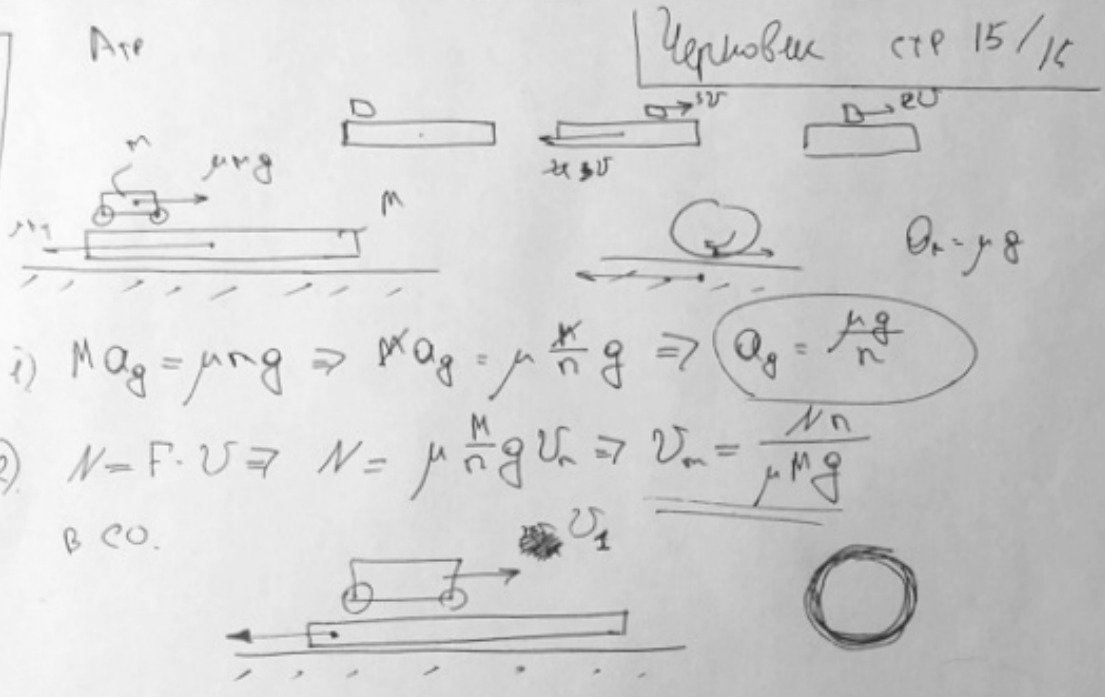 Aтр
Черновик стр 15/16
3v
2v
m
μmg
M
aₘ = μg
1) M a_g = μmg ⇒ M a_g = μ M/n g ⇒ a_g = μg/n
2) N = F · v ⇒ N = μ M/n g vₘ ⇒ vₘ = Nn/μMg
в СО.
v₁